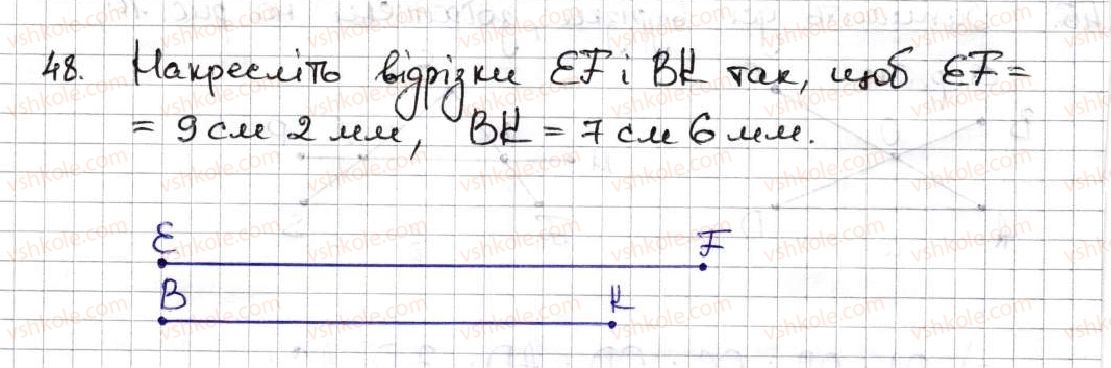 48. Накресліть відрізки EF і BK так, щоб EF =
= 9 см 2 мм, BK = 7 см 6 мм.
E F
B K